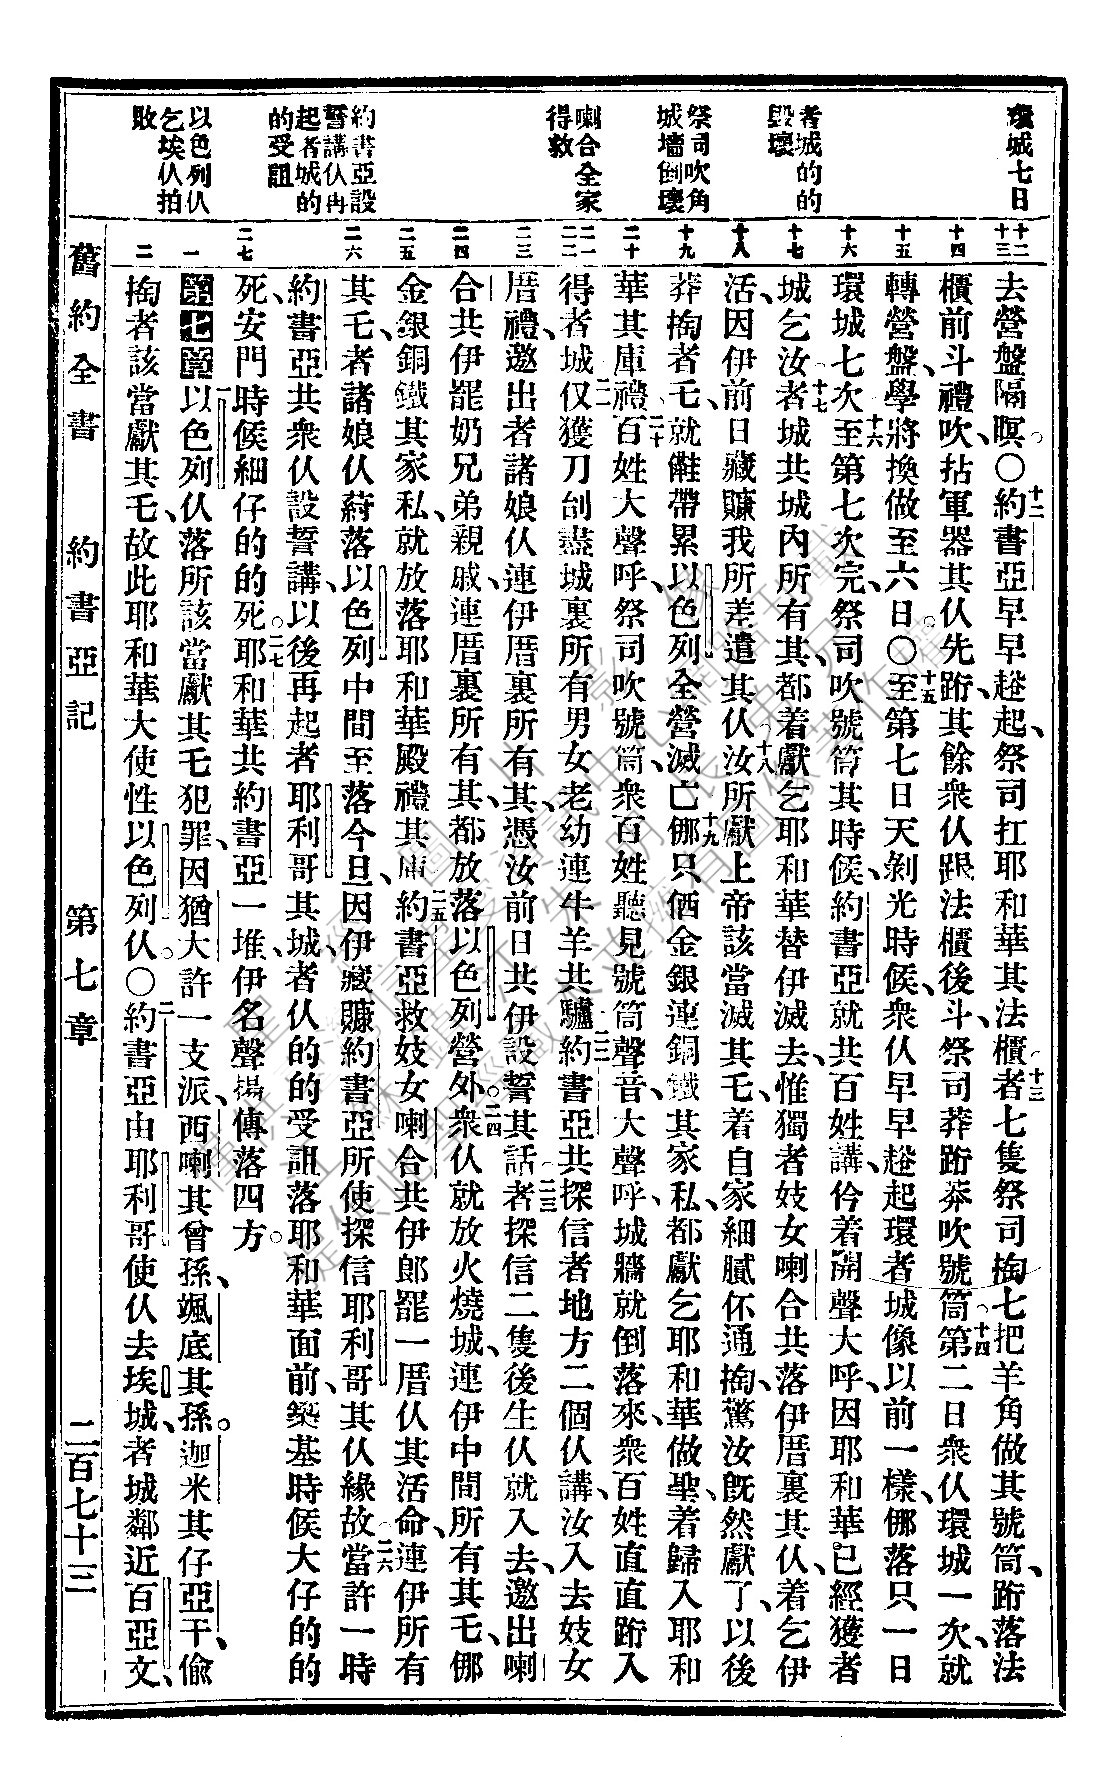 環城七日
者城的的
毀壞
祭司吹角
城墻倒壞
喇合全家
得救
約書亞設
誓講仈再
起者城的
的受詛
以色列仈
乞埃仈拍
敗
十二
十三
十四
十五
十六
十七
十八
十九
二十
二一
二二
二三
二四
二五
二六
二七
一
二
去營盤隔暝。〇十二約書亞早早趂起、祭司扛耶和華其法櫃、十三者七隻祭司掏七把羊角做其號筒、跱落法
櫃前斗禮吹、拈軍器其仈先跱、其餘衆仈跟法櫃後、斗祭司莽跱莽吹號筒、十四第二日衆仈環城一次、就
轉營盤、學將換做至六日。〇十五至第七日天剝光時候、衆仈早早趂起環者城、像以前一樣、倻落只一日
環城七次、十六至第七次完、祭司吹號筒其時候、約書亞就共百姓講、伱着開聲大呼、因耶和華已經獲者
城乞汝、十七者城共城內所有其、都着獻乞耶和華替伊滅去、惟獨者妓女喇合共落伊厝裏其仈、着乞伊
活、因伊前日藏賺我所差遣其仈、十八汝所獻上帝該當滅其乇、着自家細膩伓通掏、驚汝旣然獻了、以後
莽掏者乇、就僆帶累以色列全營滅亡、十九倻只佰金銀連銅鐵其家私、都獻乞耶和華做聖、着歸入耶和
華其庫禮、二十百姓大聲呼、祭司吹號筒、衆百姓聽見號筒聲音、大聲呼、城牆就倒落來、衆百姓直直跱入
得者城、二一仅獲刀刣盡城裏所有男女老幼、連牛羊共驢、二二約書亞共探信者地方二個仈講、汝入去妓女
厝禮、邀出者諸娘仈、連伊厝裏所有其、憑汝前日共伊設誓其話、二三者探信二隻後生仈就入去、邀出喇
合、共伊罷奶兄弟親戚、連厝裏所有其、都放落以色列營外。二四衆仈就放火燒城、連伊中間所有其乇、倻
金銀銅鐵其家私、就放落耶和華殿禮其庫、二五約書亞救妓女喇合、共伊郎罷一厝仈其活命、連伊所有
其乇、者諸娘仈蒔落以色列中間至落今旦、因伊藏賺約書亞所使探信耶利哥其仈緣故、二六當許一時
約書亞共衆仈設誓講、以後再起者耶利哥其城、者仈的的受詛落耶和華面前、築基時候大仔的的
死、安門時候細仔的的死。二七耶和華共約書亞一堆、伊名聲揚傳落四方。
第七章 一以色列仈落所該當獻其乇犯罪、因猶大許一支派、西喇其曾孫、颯底其孫。迦米其仔亞干、偷
掏者該當獻其乇、故此耶和華大使性以色列仈。〇二約書亞由耶利哥使仈去埃城、者城鄰近百亞文、
舊約全書　約書亞記　第七章　二百七十三